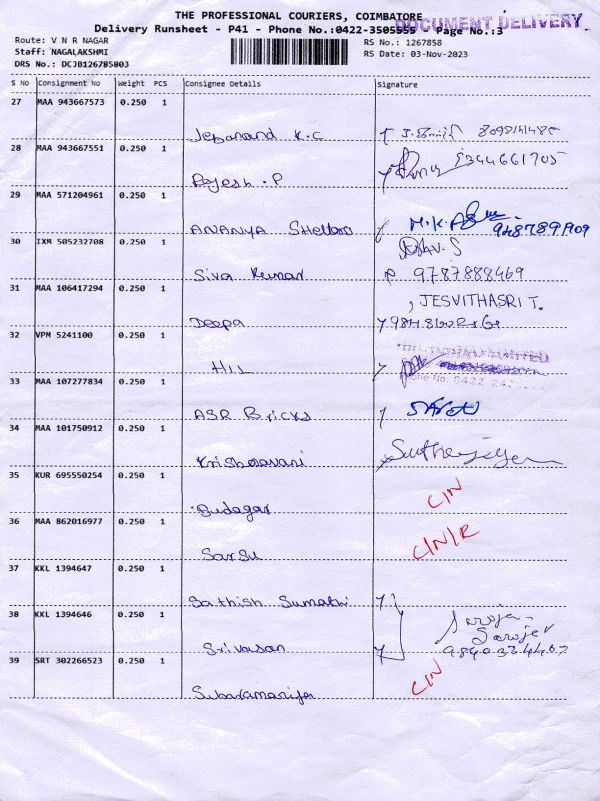 THE PROFESSIONAL COURIERS, COIMBATORE
DOCUMENT DELIVERY
Delivery Runsheet - P41 - Phone No.:0422-3505555 Page No.:3
Route: V N R NAGAR RS No.: 1267858
Staff: NAGALAKSHMI RS Date: 03-Nov-2023
DRS No.: DCJB126785803
S No Consignment No Weight PCS Consignee Details Signature
27 MAA 943667573 0.250 1
Jebanand K.C
28 MAA 943667551 0.250 1
Rajesh.P 9344661705
29 MAA 571204961 0.250 1
ANANYA Shelters M.K.
30 IXM 505232708 0.250 1
Siva Kumar 9787888469
31 MAA 106417294 0.250 1 JESVITHASRI T.
Deepa
32 VPM 5241100 0.250 1
LIMITED
Phone No. 0422
33 MAA 107277834 0.250 1
ASR Bricks
34 MAA 101750912 0.250 1
Krishnavani
35 KUR 695550254 0.250 1
Sudagar C/N
36 MAA 862016977 0.250 1 C/N/R
Sarsu
37 KKL 1394647 0.250 1
Sathish Sumathi
38 KKL 1394646 0.250 1 Saroja
Srivasan 9840334467
39 SRT 302266523 0.250 1 C/N